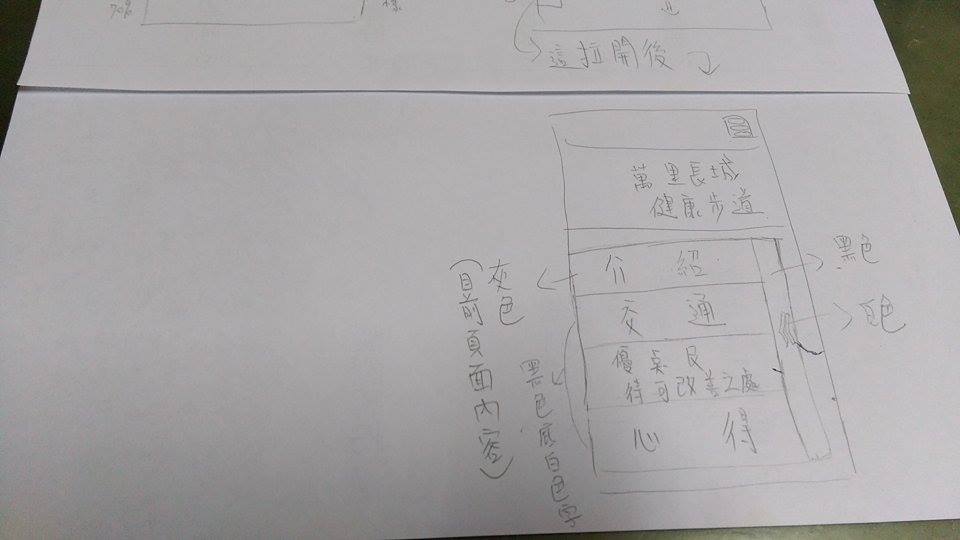 70%
樣
這拉開後
萬里長城
健康步道
介紹
交通
優點及
待可改善之處
心得
黑色
白色
灰色
(目前頁面內容)
黑色底白色字